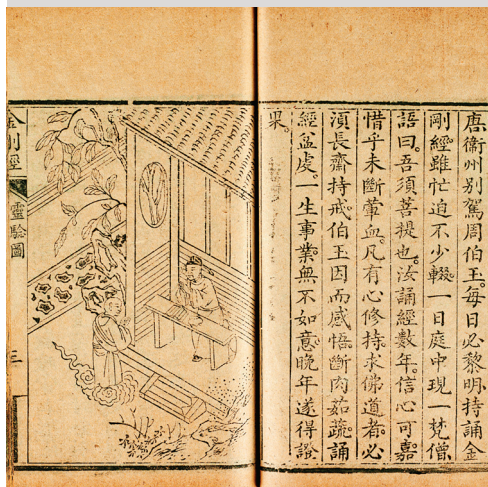 唐衢州别駕周伯玉。每日必黎明持誦金
剛經。雖忙迫不少輟。一日庭中現一梵僧。
語曰。吾須菩提也。汝誦經數年。信心可嘉。
惜乎未斷葷血。凡有心修持。求佛道者。必
須長齋持戒。伯玉因而感悟。斷肉茹蔬。誦
經益虔。一生事業。無不如意。晚年遂得證
果。
金剛經
靈驗圖
三